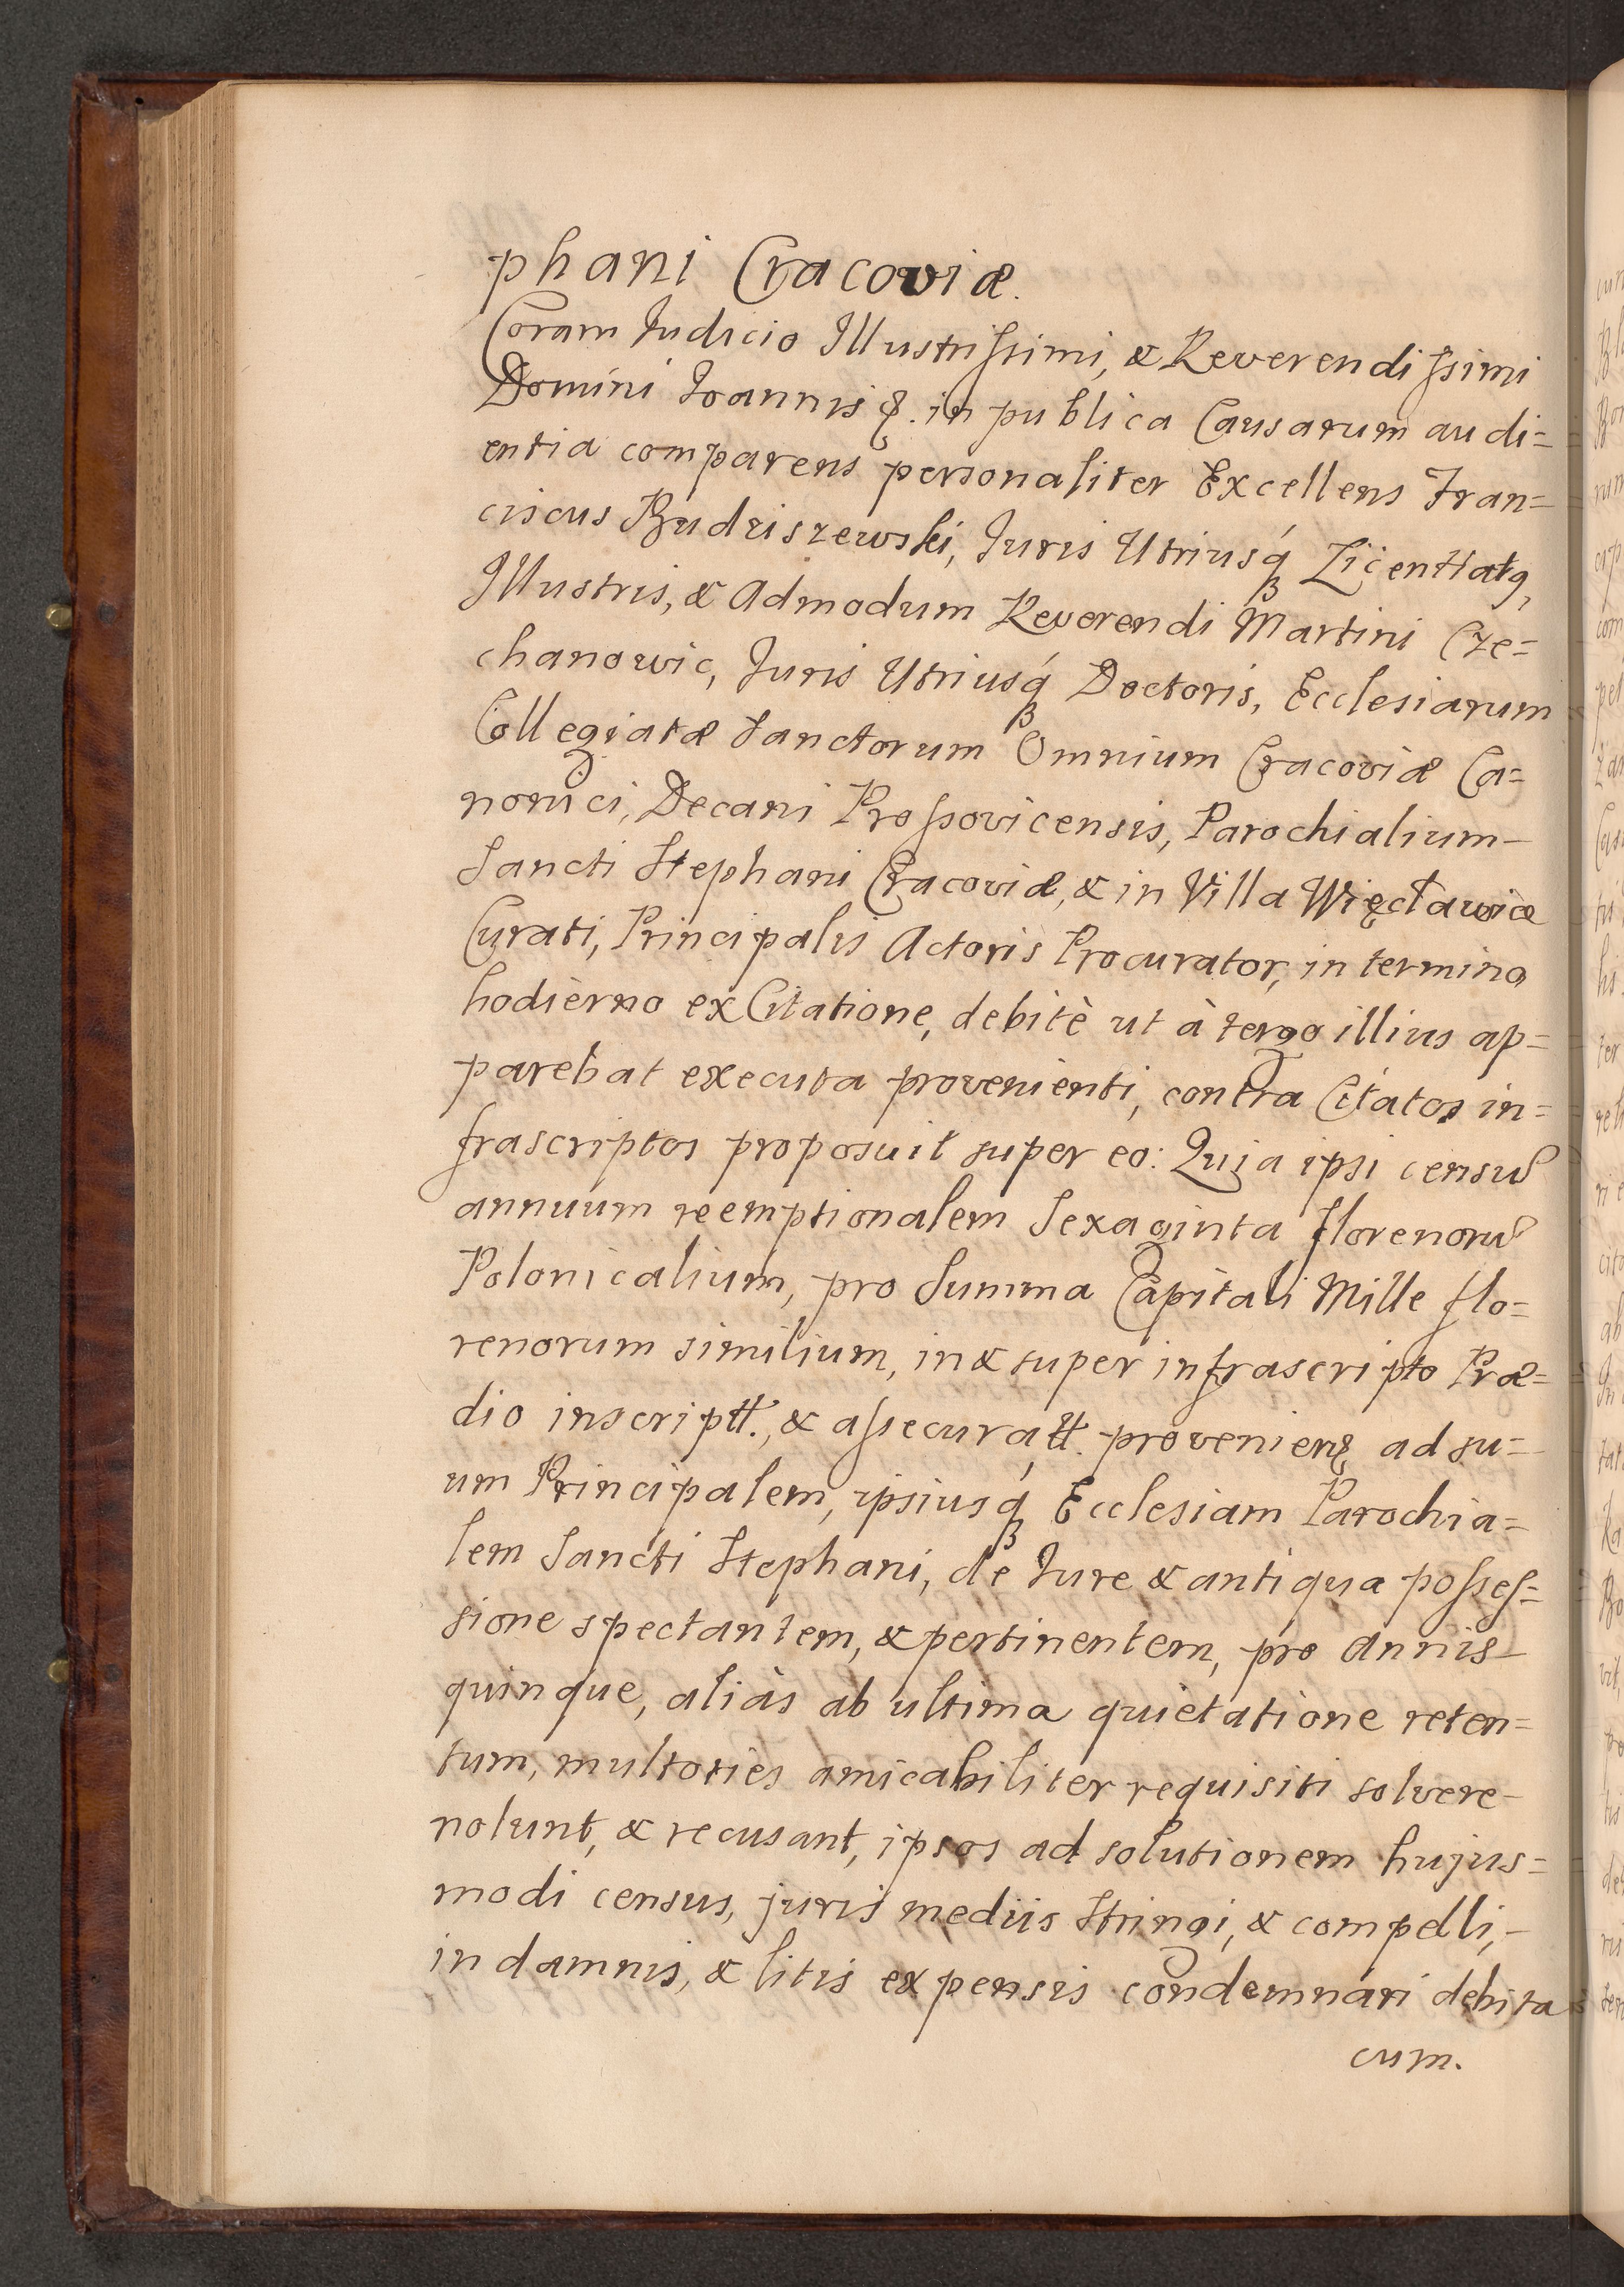 phani Cracoviæ.
Coram Judicio Illustrissimi, & Reverendissimi
Domini Joannis &. in publica Causarum audi=
entia comparens personaliter Excellens Fran=
ciscus Budziszewski, Juris Utriusq́ꝫ Licentiatꝯ,
Illustris, & Admodum Reverendi Martini Cze=
chanowic, Juris Utriusq́ꝫ Doctoris, Ecclesiarum
Collegiatæ Sanctorum Omnium Cracoviæ Ca=
nonici, Decani Prossovicensis, Parochialium
Sancti Stephani Cracoviæ, & in Villa Więcławice
Curati, Principalis Actoris Procurator, in termino
hodierno ex Citatione, debitè ut à tergo illius ap=
parebat executa provenienti, contra Citatos in=
frascriptos proposuit super eo: Quia ipsi censũ
annuum reemptionalem Sexaginta florenorũ
Polonicalium, pro Summa Capitali Mille flo=
renorum similium, in & super infrascripto Præ=
dio inscriptt., & assecuratt. proveniens ad su=
um Principalem, ipsiusq́ꝫ Ecclesiam Parochia=
lem Sancti Stephani, de Jure & antiqua posses=
sione spectantem, & pertinentem, pro annis
quinque, aliàs ab ultima quietatione reten=
tum, multoties amicabiliter requisiti solvere
nolunt, & recusant, ipsos ad solutionem hujus=
modi census, juris mediis Stringi, & compelli,
in damnis, & litis expensis condemnari debita
cum.